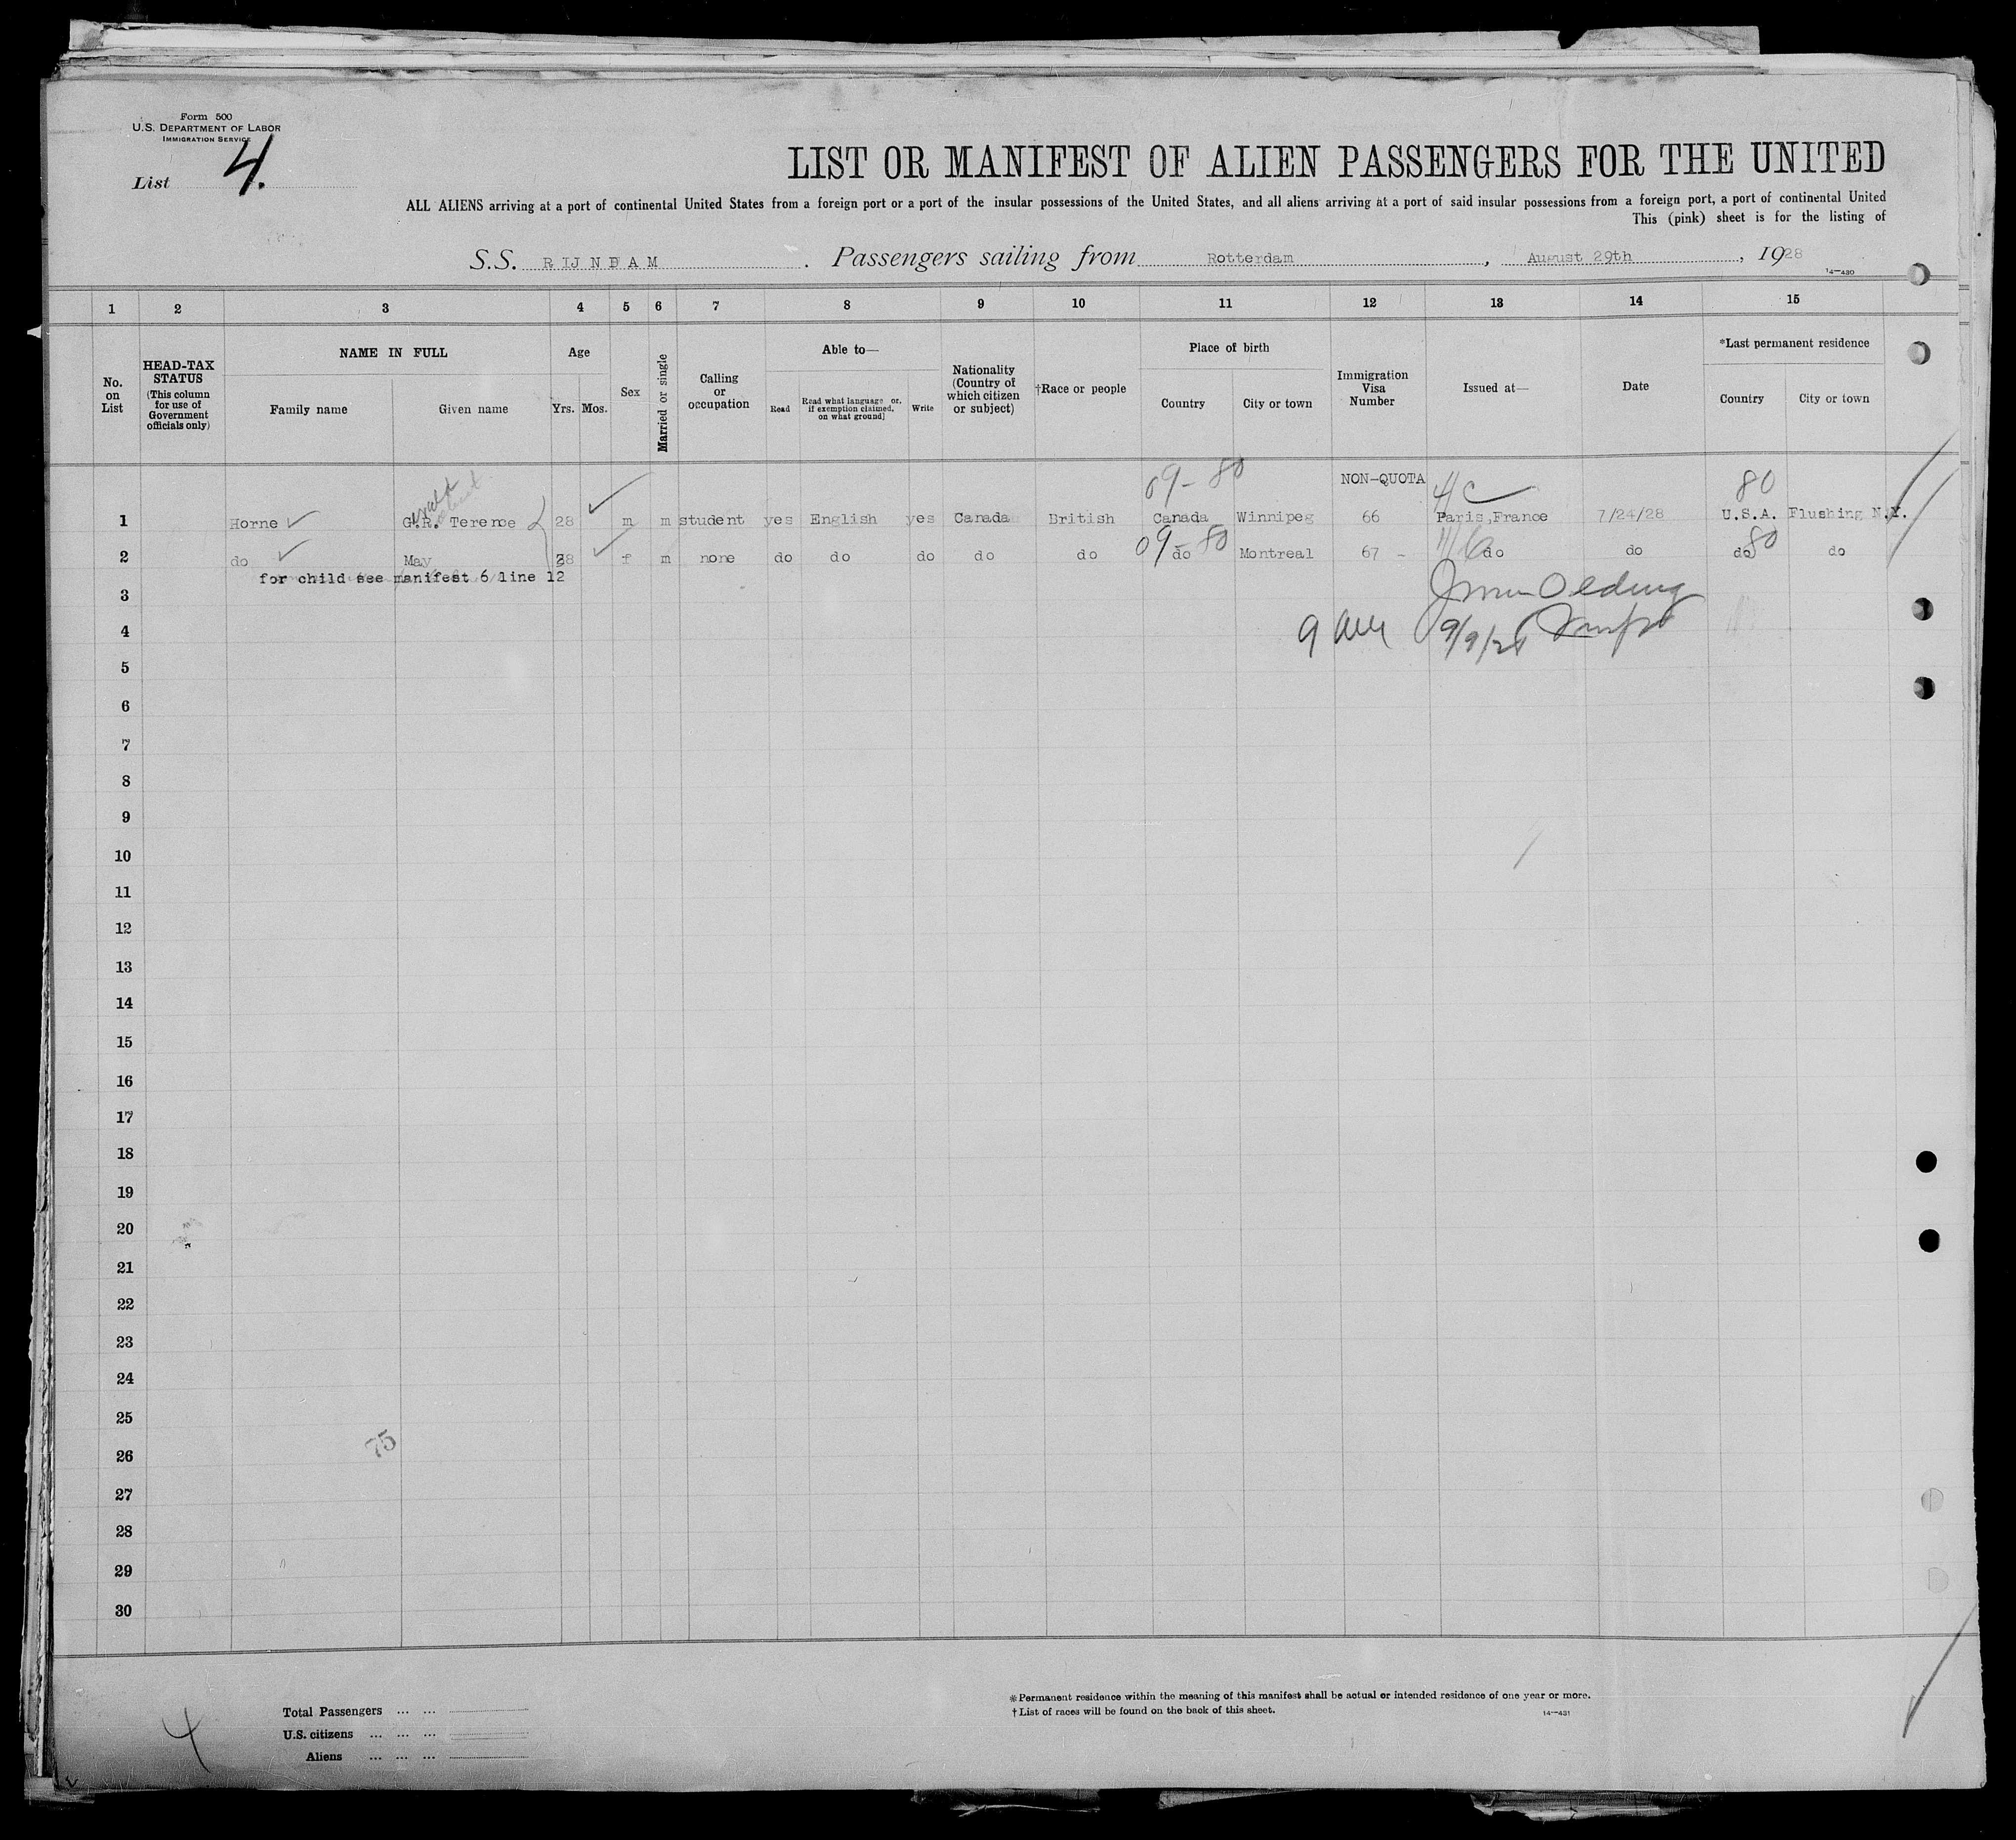 Form 500
U.S. DEPARTMENT OF LABOR
IMMIGRATION SERVICE
List 4.
LIST OR MANIFEST OF ALIEN PASSENGERS FOR THE UNITED
ALL ALIENS arriving at a port of continental United States from a foreign port or a port of the insular possessions of the United States, and all aliens arriving at a port of said insular possessions from a foreign port, a port of continental United
This (pink) sheet is for the listing of
S.S. RIJNDAM. Passengers sailing from Rotterdam, August 29th, 1928
14—430
1 2 3 4 5 6 7 8 9 10 11 12 13 14 15
No. on List
HEAD-TAX STATUS (This column for use of Government officials only)
NAME IN FULL
Family name
Given name
Age
Yrs. Mos.
Sex
Married or single
Calling or occupation
Able to—
Read
Read what language or, if exemption claimed, on what ground]
Write
Nationality (Country of which citizen or subject)
†Race or people
Place of birth
Country
City or town
Immigration Visa Number
Issued at—
Date
*Last permanent residence
Country
City or town
09-80 NON-QUOTA 4c 80
1 Horne G.R. Terence 28 m m student yes English yes Canada British Canada Winnipeg 66 Paris,France 7/24/28 U.S.A. Flushing N.Y.
09-80 80
2 do May 28 f m none do do do do do do Montreal 67 - do do do do
for child see manifest 6 line 12
3
4
9/9/28
5
6
7
8
9
10
11
12
13
14
15
16
17
18
19
20
21
22
23
24
25
75
26
27
28
29
30
Total Passengers ... ...
U.S. citizens ... ... ...
Aliens ... ... ...
4
*Permanent residence within the meaning of this manifest shall be actual or intended residence of one year or more.
†List of races will be found on the back of this sheet.
14—431